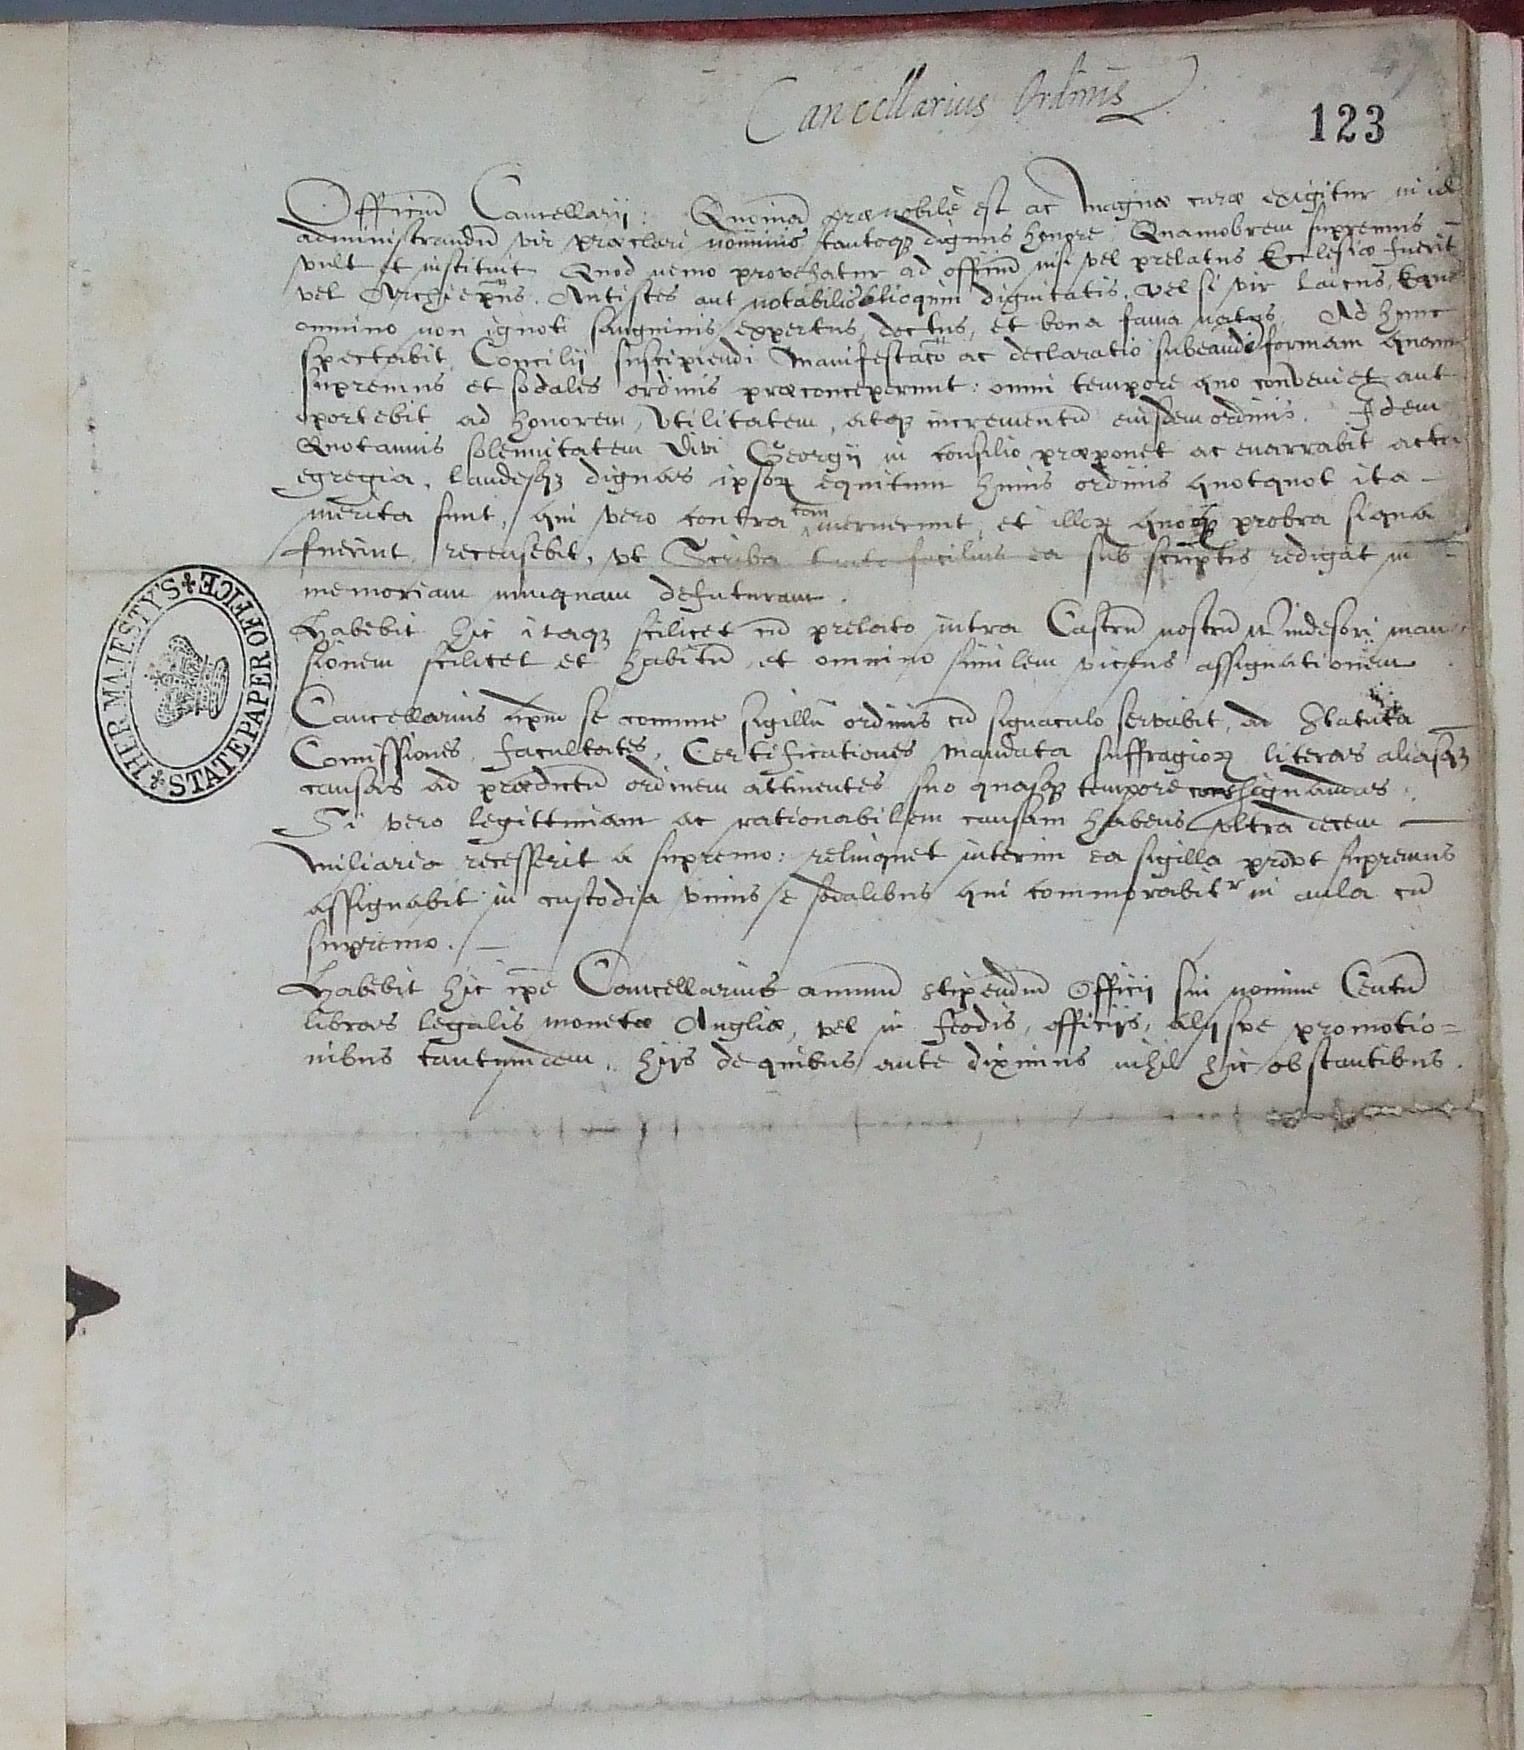 Cancellarius Ordinis
123
Officiũ Cancellarij: Quoniã prænobile est ac magnæ curæ exigitur in id
administrandũ vir præclari nominis tantoqȝ dignus honore Quamobrem supremus
vult et instituit Quod nemo provehatur ad officiũ nisi vel prelatus Ecclesiæ fuerit
vel Archiepũs. Antistes aut notabilis alioquin dignitatis, vel si vir laicus, Eques
omnino non ignoti sanguinis, expertus, doctus, et bona fama natus Ad hunc
spectabit Concilij suscipiendi Manifestacõ ac declaratio subeundi formam quam
supremus et sodales ordinis præconceperint: omni tempore quo conveniet aut
oportebit ad honorem, vtilitatem, atqȝ incrementũ eiusdem ordinis. Idem
Quotannis solennitatem Divi Georgij in consilio præponet ac enarrabit acta
egregia, laudesqȝ dignas ipsoꝝ equitum huius ordinis quotquot ita
merita sunt, qui vero contra meruerint, et illoꝝ quoqȝ probra signa
fuerint recensebit, vt Scriba tanto facilius ea sub scriptis redigat in
memoriam nunquam defuturam.
Habebit hic itaqȝ scilicet cũ prelato intra Castrũ nostrũ Windesori man
sionem scilicet et habitũ, et omnino similem vicens assignationem
Cancellarius apud se comune sigillũ ordinis cũ signaculo servabit, ad Statuta
Comissiones, facultates, Certificationes Mandata suffragioꝝ literas aliasqȝ
causas ad prædictũ ordinem attinentes suo quasqȝ tempore consignandas.
Si vero legittimam ac rationabilem causam habens vltra decem
miliaria recesserit a supremo: relinquet interim ea sigilla prout supremus
assignabit in custodia vnius e sodalibus qui commorabitʳ in aula cũ
supremo.
Habebit hic ipẽ Cancellarius annuũ stipendiũ Officij sui nomine Centũ
libras legalis monetæ Angliæ, vel in feodis, officijs, alijsve promotio=
nibus tantundem, hijs de quibus ante diximus nihil hic obstantibus.
HER MAJESTY'S STATE PAPER OFFICE